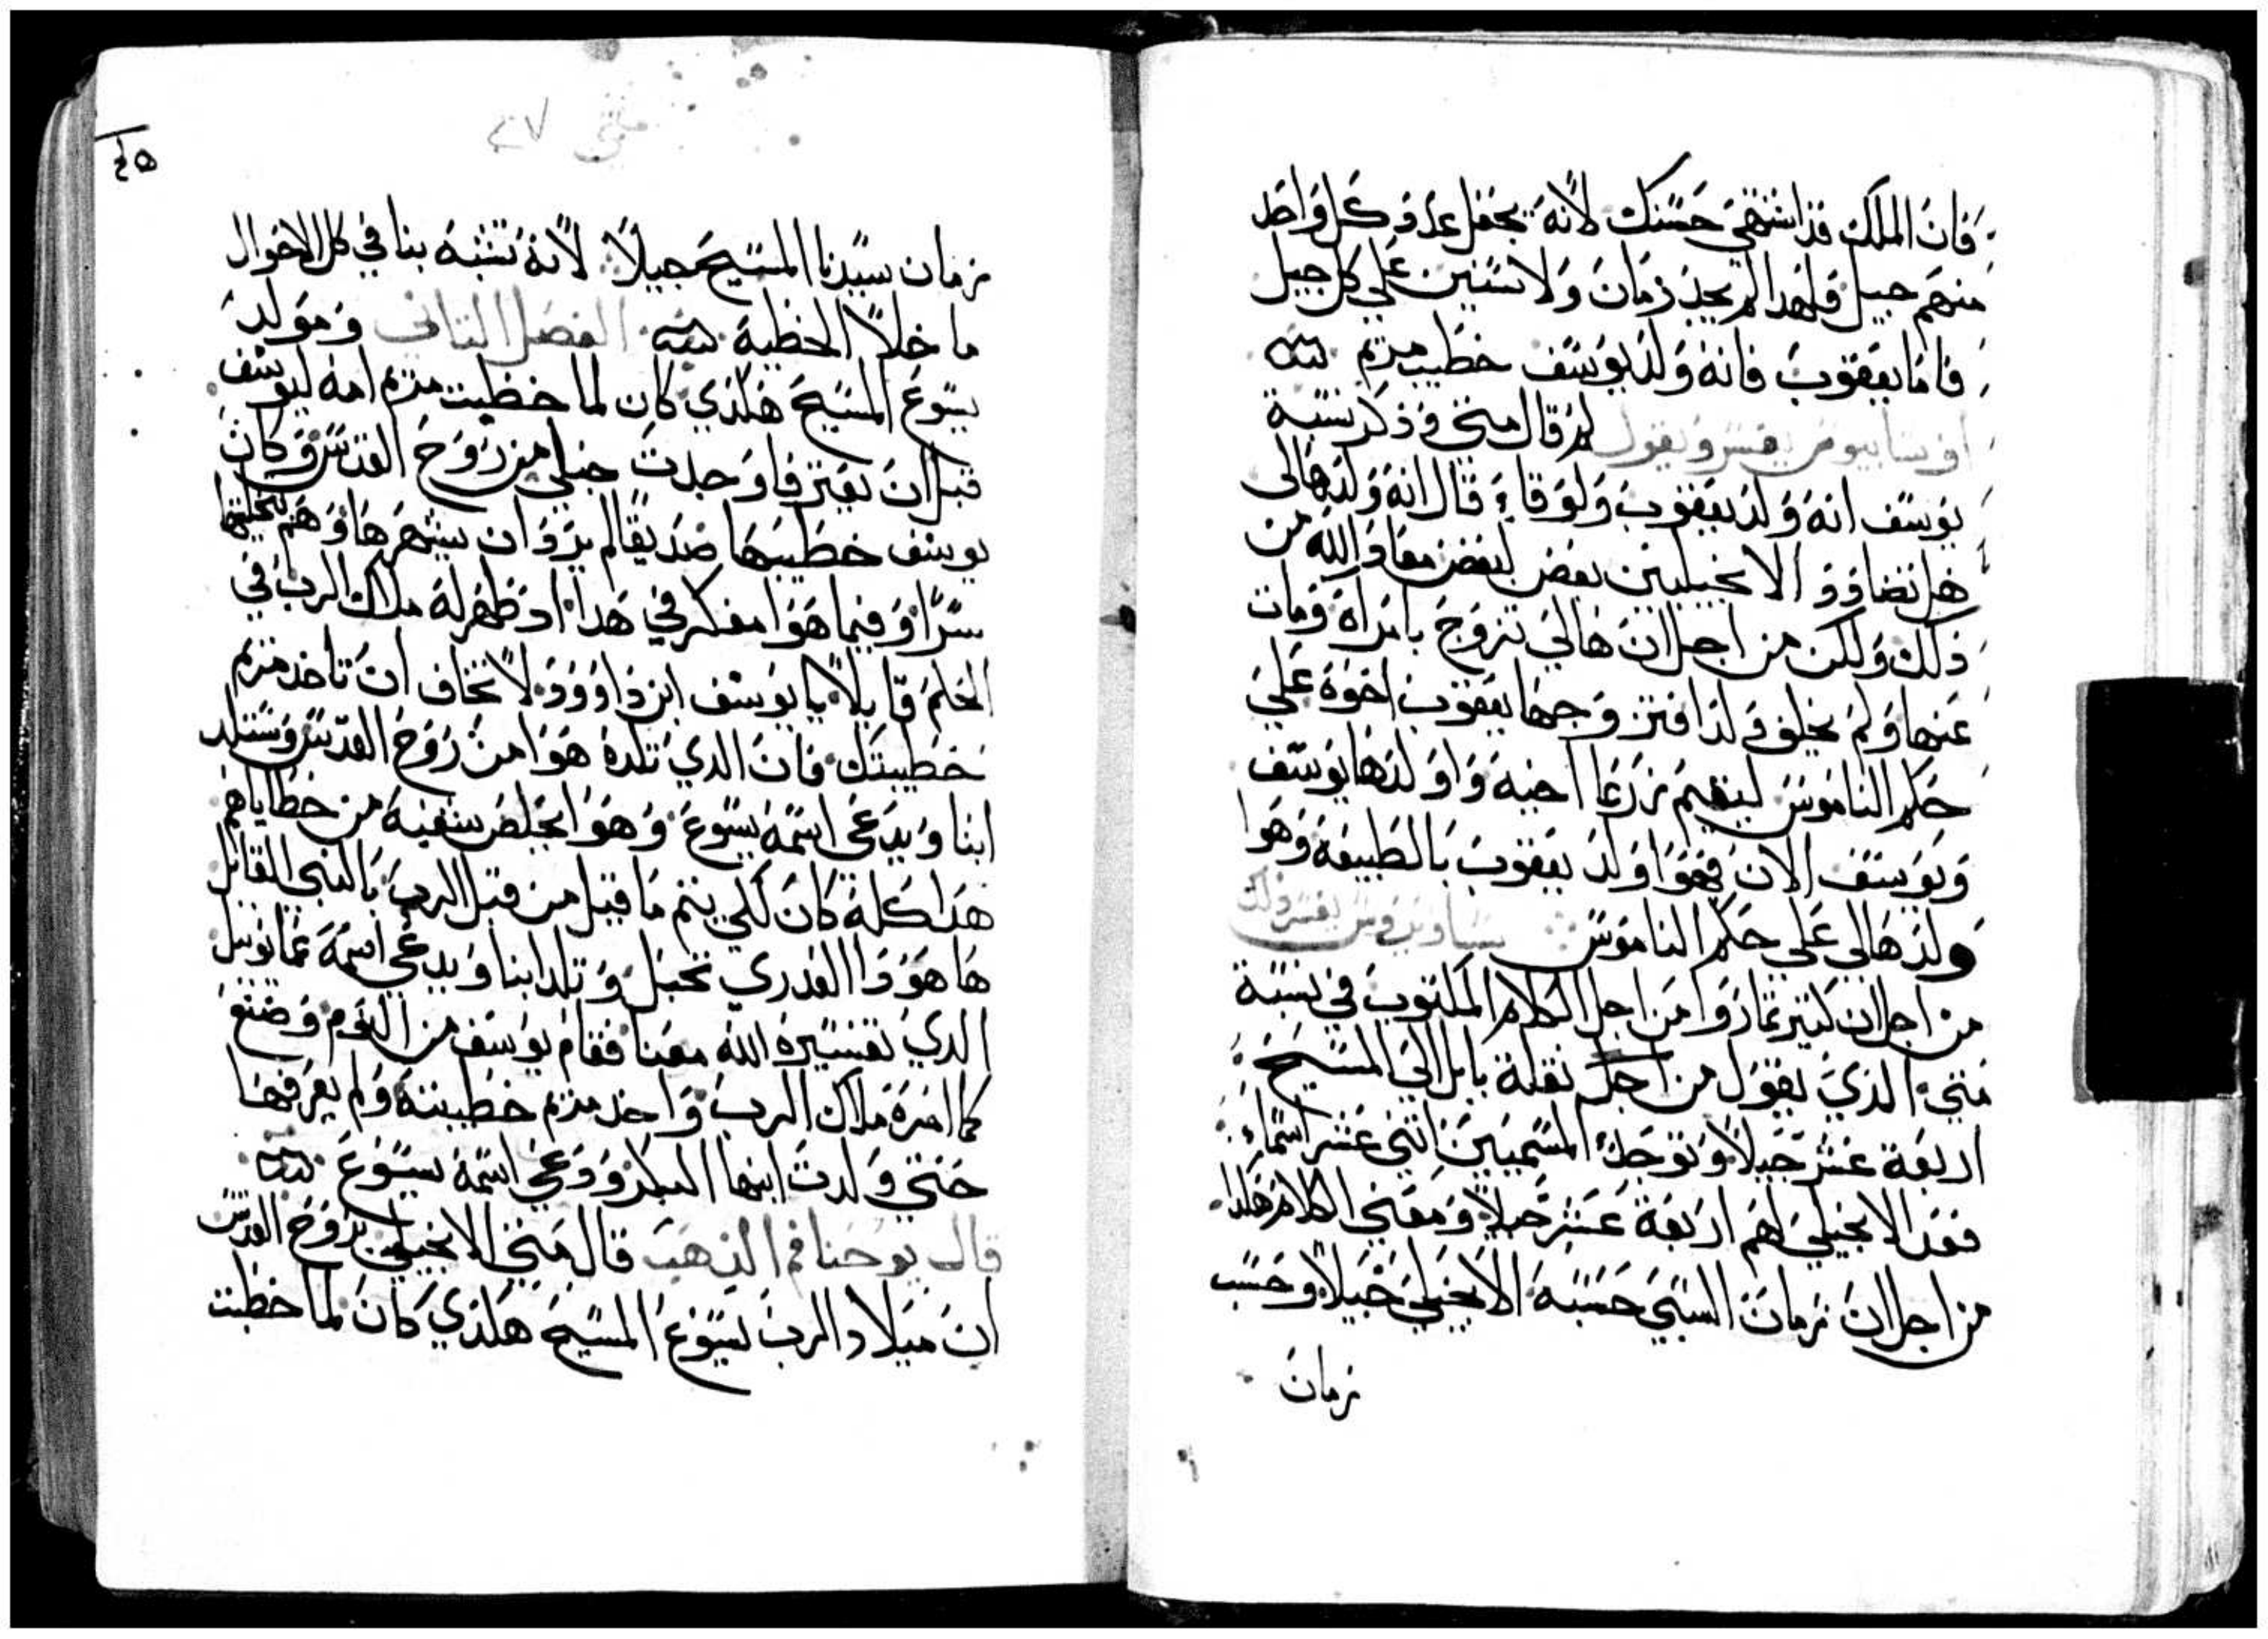 فان الملك قد اشتهى حسنك لانه يجعل عدد كل واحد
منهم جيل فلهدا لم يحد زمان ولا سنين على كل جيل
فاما يعقوب فانه ولد يوسف خطيب مريم
اوسابيوس يفسر ويقول لم قال متى وذكر نسبة
يوسف انه ولد يعقوب ولوقا قال انه ولد هالى
هل تضادو الانجيليين بعض لبعض معاد الله من
ذلك ولكن من اجل ان هالي تزوج بامراة ومات
عنها ولم يخلف ولدا فتزوجها يعقوب اخوه على
حكم الناموس ليقيم زرعا اخيه واولدها يوسف
ويوسف الان فهوا ولد يعقوب بالطبيعة وهوا
ولد هالى على حكم الناموس ساويروس يفسر ذلك
من اجل ان كتير تماروا من اجل الكلام المكتوب في نسبة
متى الذي يقول من اجل نقلة بابل الى المسيح
اربعة عشر جيلا وتوجد المسميين اثنى عشر اسماء
فعد الانجيلي لهم اربعة عشر جيلا ومعنى الكلام هكدا
من اجل ان زمان السبي حسبه الانجيلي جيلا وحسب
زمان
متى ٢٧
٤٥
زمان سيدنا المسيح جيلا لانه تشبه بنا في كل الاحوال
ما خلا الخطية الفصل التاني ومولد
يسوع المسيح هكذي كان لما خطبت مريم امه ليوسف
قبل ان يفترقا وجدت حبلى من روح القدس وكان
يوسف خطيبها صديقا لم يرد ان يشهرها وهم بتخليتها
سرا وفيما هوا مفكر في هدا اد ظهر له ملاك الرب في
الحلم قايلا يا يوسف ابن داوود لا تخاف ان تاخد مريم
خطيبتك فان الدي تلده هوا من روح القدس وستلد
ابنا ويدعى اسمه يسوع وهوا يخلص شعبه من خطاياهم
هدا كله كان لكي يتم ما قيل من قبل الرب بالنبي القائل
ها هودا العدري تحبل وتلد ابنا ويدعى اسمه عمانويل
الدي تفسيره الله معنا فقام يوسف من النوم وصنع
كما امره ملاك الرب واخد مريم خطيبته ولم يعرفها
حتى ولدت ابنها البكر ودعى اسمه يسوع
قال يوحنا فم الذهب قال متى الانجيلي بروح القدس
ان ميلاد الرب يسوع المسيح هكذي كان لما خطبت